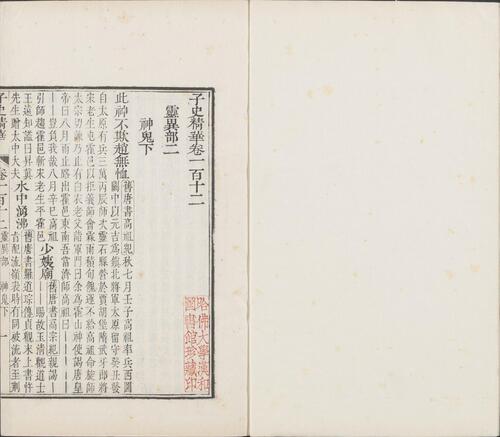 子史精華卷一百十二
靈異部二
神鬼下
此神不欺趙無恤 舊唐書高祖紀秋七月壬子高祖率兵西圖
關中以元吉為鎮北將軍太原留守癸丑發
自太原有兵三萬丙辰師次靈石縣營於賈胡堡隋武牙郎將
宋老生屯霍邑以拒義師會霖雨積旬餽運不給高祖命旋師
太宗切諫乃止有白衣老父詣軍門曰余為霍山神使謁唐皇
帝曰八月雨止路出霍邑東南吾當濟師高祖曰
豈負我哉八月辛巳高祖
引師趨霍邑斬宋老生平霍邑 少姨廟 舊唐書高宗紀親謁
賜故玉清觀道士
王遠知諡曰昇真
先生贈太中大夫 水中湧沸 舊唐書羅道琮傳貞觀末上書忤
旨配流嶺表時有同被流者至荆
子史精華
卷一百十二 靈異部 神鬼下
一
哈佛大學漢和
圖書館珍藏印